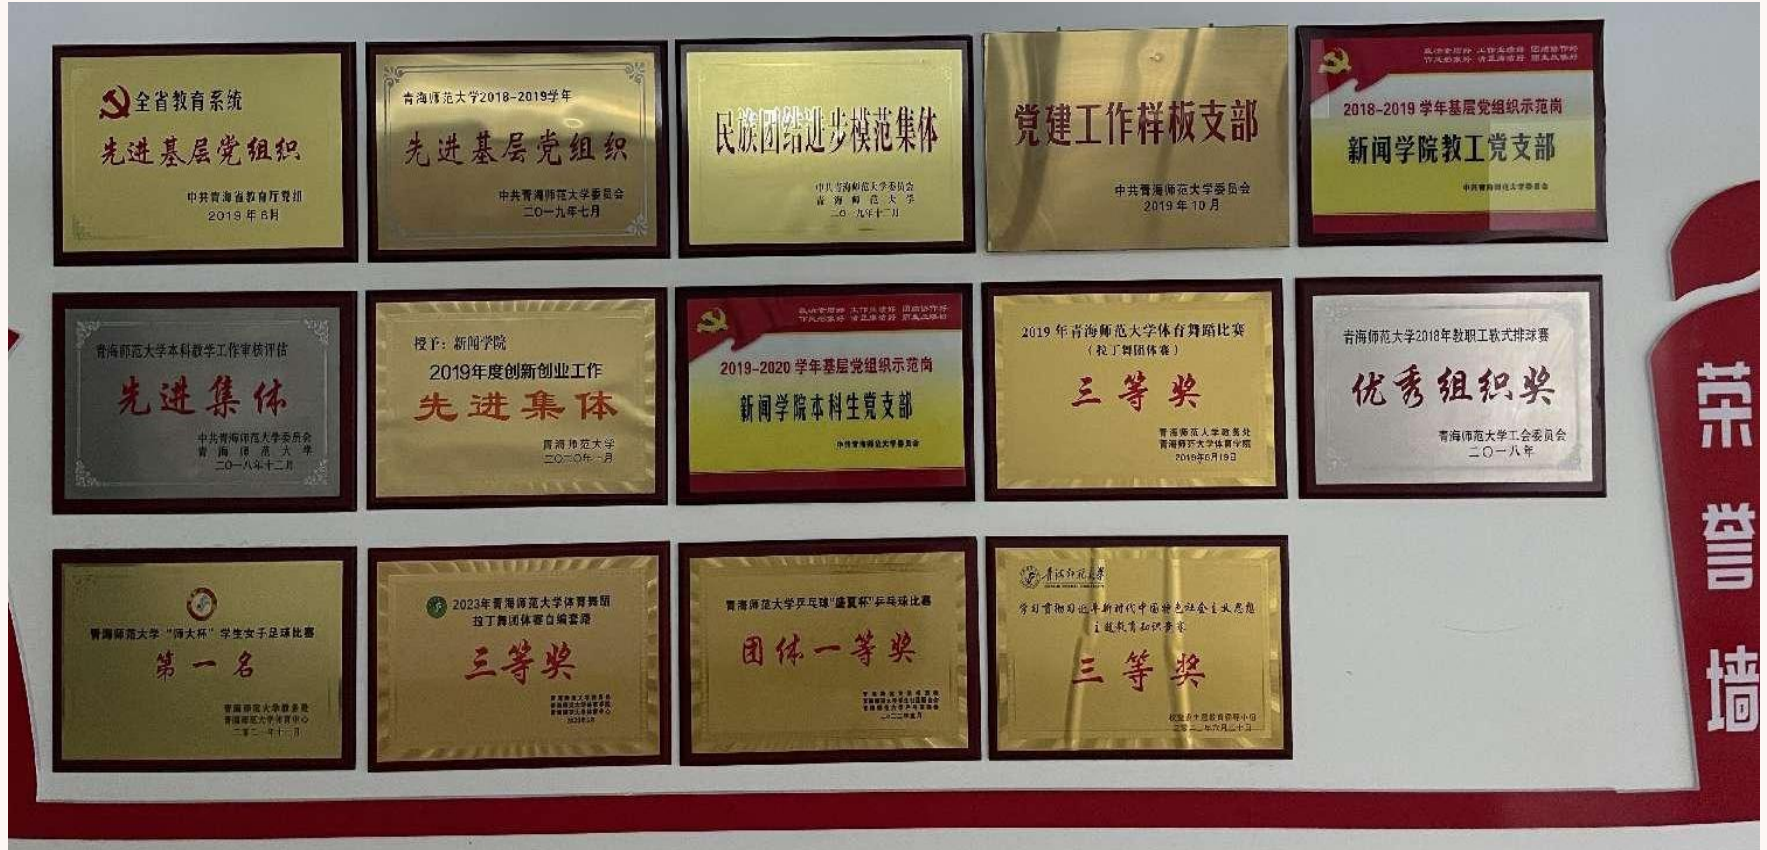 全省教育系统
先进基层党组织
中共青海省教育厅党组
2019年6月
青海师范大学2018-2019学年
先进基层党组织
中共青海师范大学委员会
二〇一九年七月
民族团结进步模范集体
中共青海师范大学委员会
青海师范大学
二〇一九年十二月
党建工作样板支部
中共青海师范大学委员会
2019年10月
2018-2019学年基层党组织示范岗
新闻学院教工党支部
中共青海师范大学委员会
青海师范大学本科教学工作审核评估
先进集体
中共青海师范大学委员会
青海师范大学
二〇一八年十二月
授予：新闻学院
2019年度创新创业工作
先进集体
青海师范大学
二〇二〇年一月
2019-2020学年基层党组织示范岗
新闻学院本科生党支部
中共青海师范大学委员会
2019年青海师范大学体育舞蹈比赛
（拉丁舞团体赛）
三等奖
青海师范大学教务处
青海师范大学体育学院
2019年6月19日
青海师范大学2018年教职工软式排球赛
优秀组织奖
青海师范大学工会委员会
二〇一八年
青海师范大学“师大杯”学生女子足球比赛
第一名
青海师范大学教务处
青海师范大学体育中心
2023年青海师范大学体育舞蹈
拉丁舞团体赛自编套路
三等奖
青海师范大学乒乓球“盛夏杯”乒乓球比赛
团体一等奖
青海师范大学
学习贯彻习近平新时代中国特色社会主义思想
主题教育知识竞赛
三等奖
校党委主题教育领导小组
荣誉墙